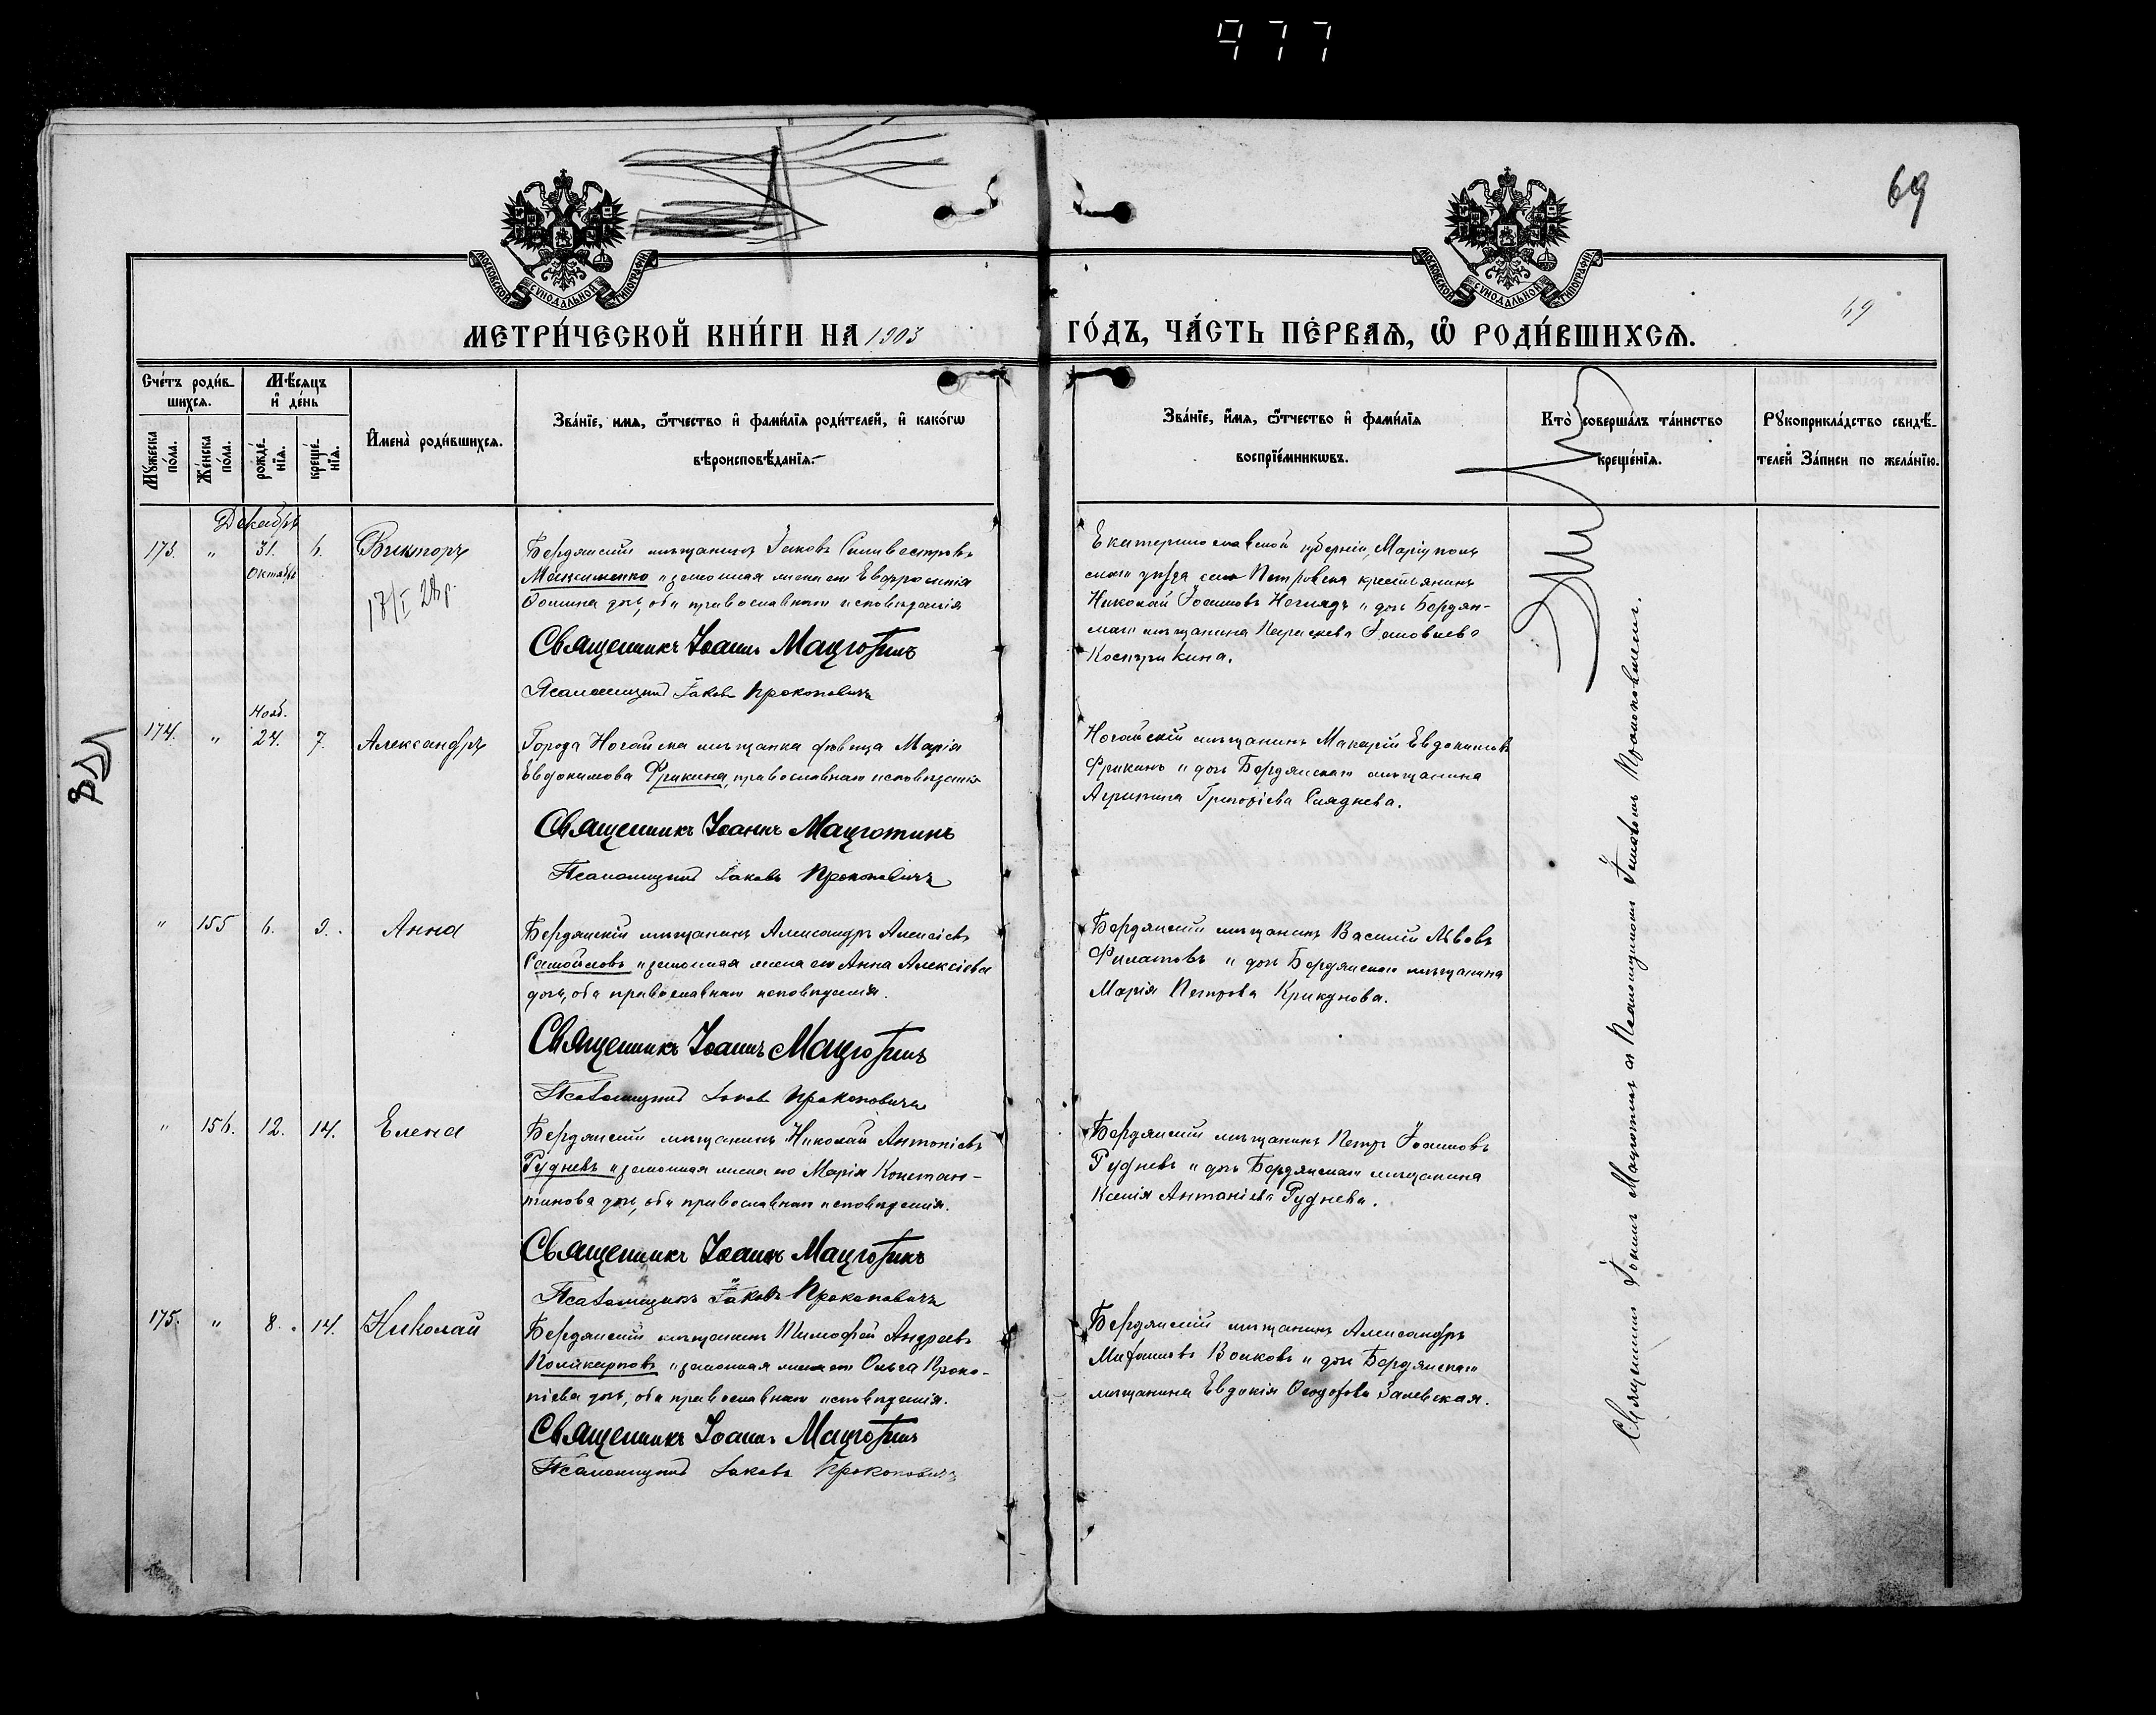 977
69
69
МОСКОВСКОЙ СѴНОДАЛЬНОЙ ТИПОГРАФІИ
МОСКОВСКОЙ СѴНОДАЛЬНОЙ ТИПОГРАФІИ
МЕТРИ́ЧЕСКОЙ КНИ́ГИ НА 1903
ГО́ДЪ, ЧА́СТЬ ПЕ́РВАѦ, Ѽ РОДИ́ВШИХСѦ.
Сче́тъ роди́в-
шихсѧ.
Мꙋ́жеска
по́ла.
Же́нска
по́ла.
Мѣ́сѧцъ
и҆ де́нь
рожде́-
нїѧ.
креще́-
нїѧ.
И҆мена̀ роди́вшихсѧ.
Зва́нїе, имѧ, ѻ҆́тчество и҆ фами́лїѧ роди́телей, и҆ како́гѡ
вѣроисповѣ́данїѧ.
Зва́нїе, и҆́мѧ, ѻ҆́тчество и҆ фами́лїѧ
воспрїе́мникѡвъ.
Кто̀ соверша́лъ та́инство
креще́нїѧ.
Рꙋкоприкла́дство свидѣ́-
телей За́писи по жела́нїю.
Декабрь
173. " 31. 6. Викторъ
Октября
17/I
Бердянскій мѣщанинъ Іаковъ Силивестровъ
Максименко и законная жена его Евфросинія
Ѳомина дочь, оба православнаго исповѣданія
Священникъ Іоаннъ Мацготинъ
Псаломщикъ Іаковъ Прокоповичъ
Екатеринославской губерніи, Маріуполь
скаго уѣзда села Петровска крестьянинъ
Николай Іоанновъ и дочь Бердян-
скаго мѣщанина Параскева Іаковлева
174. " 24. 7. Александръ
Нояб.
Города Ногайска мѣщанка дѣвица Марія
Евдокимова Фрикина, православнаго исповѣданія
Священникъ Іоаннъ Мацготинъ
Псаломщикъ Іаковъ Прокоповичъ
Ногайскій мѣщанинъ Макарій Евдокимовъ
Фрикинъ и дочь Бердянскаго мѣщанина
Агрипина Григоріева
" 155 6. 9. Анна
Бердянскій мѣщанинъ Александръ Алексіевъ
Самойловъ и законная жена его Анна Алексіева
дочь, оба православнаго исповѣданія.
Священникъ Іоаннъ Мацготинъ
Псаломщикъ Іаковъ Прокоповичъ
Бердянскій мѣщанинъ Василій Львовъ
Филатовъ и дочь Бердянскаго мѣщанина
Марія Петрова Крикунова.
" 156. 12. 14. Елена
Бердянскій мѣщанинъ Николай Антоніевъ
Рудневъ и законная жена его Марія Констан-
тинова дочь, оба православнаго исповѣданія.
Священникъ Іоаннъ Мацготинъ
Псаломщикъ Іаковъ Прокоповичъ
Бердянскій мѣщанинъ Петръ Іоанновъ
Рудневъ и дочь Бердянскаго мѣщанина
Ксенія Антоніева Руднева.
175. " 8. 14. Николай
Бердянскій мѣщанинъ Тимофей Андреевъ
Поликарповъ и законная жена его Ольга Проко-
піева дочь, оба православнаго исповѣданія.
Священникъ Іоаннъ Мацготинъ
Псаломщикъ Іаковъ Прокоповичъ
Бердянскій мѣщанинъ Александръ
Волковъ и дочь Бердянскаго
мѣщанина Евдокія Ѳеодорова Залевская.
Священникъ Іоаннъ Мацготинъ съ Псаломщикомъ Іаковомъ Прокоповичемъ.